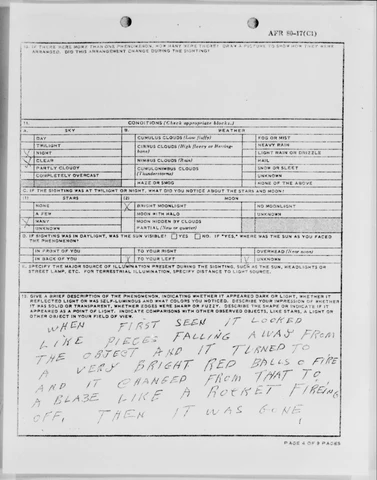 AFR 80-17(C1)
10. IF THERE WERE MORE THAN ONE PHENOMENON, HOW MANY WERE THERE? DRAW A PICTURE TO SHOW HOW THEY WERE
ARRANGED. DID THIS ARRANGEMENT CHANGE DURING THE SIGHTING?
11. CONDITIONS (Check appropriate blocks.)
A. SKY B. WEATHER
DAY CUMULUS CLOUDS (Low fluffy) FOG OR MIST
TWILIGHT CIRRUS CLOUDS (High fleecy or Herring-bone) HEAVY RAIN
NIGHT LIGHT RAIN OR DRIZZLE
CLEAR NIMBUS CLOUDS (Rain) HAIL
PARTLY CLOUDY CUMULONIMBUS CLOUDS (Thunderstorms) SNOW OR SLEET
COMPLETELY OVERCAST UNKNOWN
HAZE OR SMOG NONE OF THE ABOVE
C. IF THE SIGHTING WAS AT TWILIGHT OR NIGHT, WHAT DID YOU NOTICE ABOUT THE STARS AND MOON?
(1) STARS (2) MOON
NONE BRIGHT MOONLIGHT NO MOONLIGHT
A FEW MOON WITH HALO UNKNOWN
MANY MOON HIDDEN BY CLOUDS
UNKNOWN PARTIAL (New or quarter)
D. IF SIGHTING WAS IN DAYLIGHT, WAS THE SUN VISIBLE? YES NO. IF "YES," WHERE WAS THE SUN AS YOU FACED
THE PHENOMENON?
IN FRONT OF YOU TO YOUR RIGHT OVERHEAD (Near noon)
IN BACK OF YOU TO YOUR LEFT UNKNOWN
E. SPECIFY THE MAJOR SOURCE OF ILLUMINATION PRESENT DURING THE SIGHTING, SUCH AS THE SUN, HEADLIGHTS OR
STREET LAMP, ETC. FOR TERRESTRIAL ILLUMINATION, SPECIFY DISTANCE TO LIGHT SOURCE.
12. GIVE A BRIEF DESCRIPTION OF THE PHENOMENON, INDICATING WHETHER IT APPEARED DARK OR LIGHT, WHETHER IT
REFLECTED LIGHT OR WAS SELF-LUMINOUS AND WHAT COLORS YOU NOTICED. DESCRIBE YOUR IMPRESSION OF WHETHER
IT WAS SOLID OR TRANSPARENT, WHETHER EDGES WERE SHARP OR FUZZY. DESCRIBE THE SHAPE OR INDICATE IF IT
APPEARED AS A POINT OF LIGHT. INDICATE COMPARISONS WITH OTHER OBSERVED OBJECTS, LIKE STARS, A LIGHT OR
OTHER OBJECT IN YOUR FIELD OF VIEW.
WHEN FIRST SEEN IT LOOKED
LIKE PIECES FALLING AWAY FROM
THE OBJECT AND IT TURNED TO
A VERY BRIGHT RED BALL O FIRE
AND IT CHANGED FROM THAT TO
A BLAZE LIKE A ROCKET FIREING
OFF, THEN IT WAS GONE
PAGE 4 OF 9 PAGES